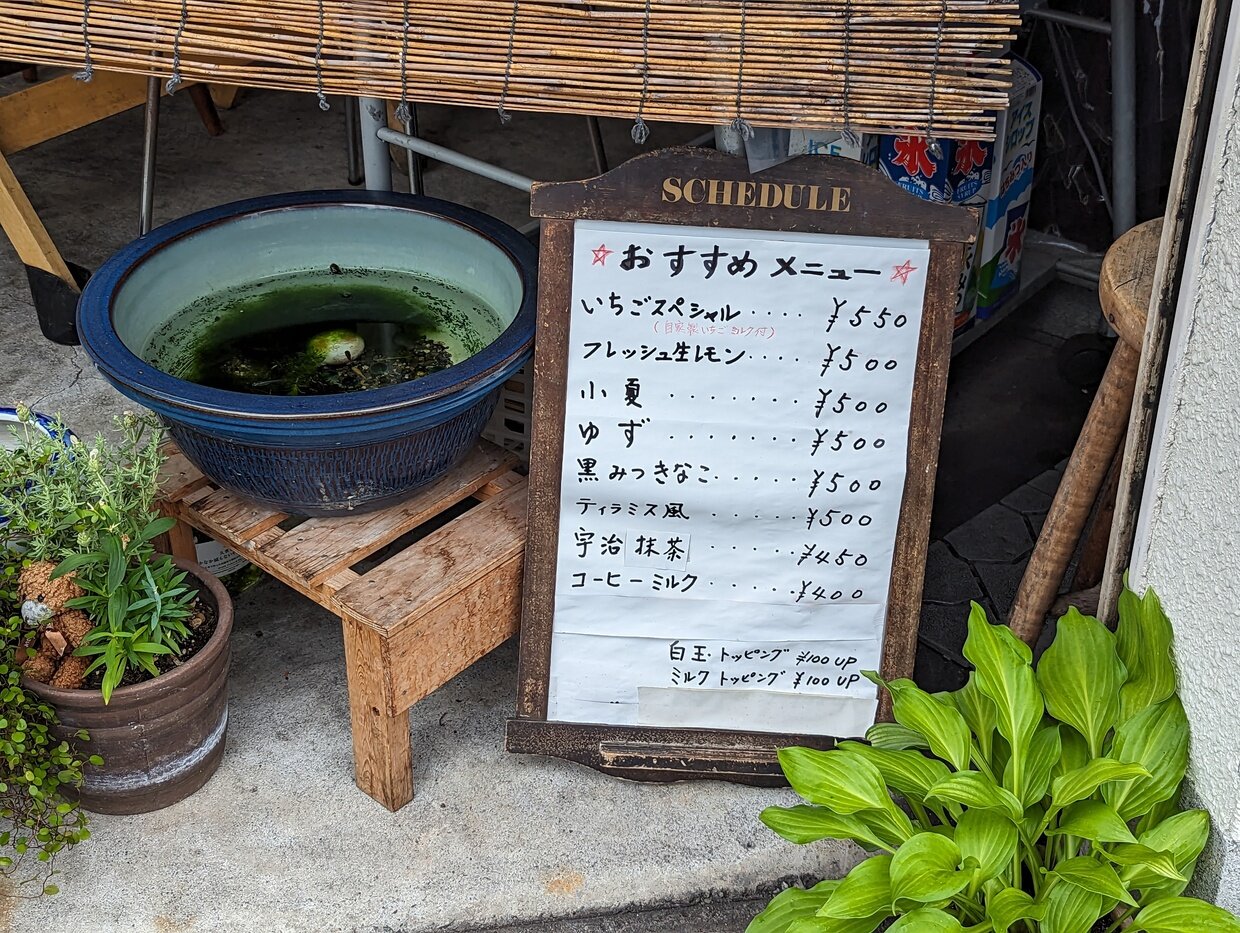 ICE
氷
FRUITS
SYRUP
氷
FRUITS
アイス
氷
SCHEDULE
☆ おすすめメニュー ☆
いちごスペシャル ···· ¥550
(自家製いちごミルク付)
フレッシュ生レモン ···· ¥500
小夏 ······· ¥500
ゆず ······· ¥500
黒みつきなこ ····· ¥500
ティラミス風 ····· ¥500
宇治抹茶 ····· ¥450
コーヒーミルク ····· ¥400
白玉・トッピング ¥100 UP
ミルクトッピング ¥100 UP